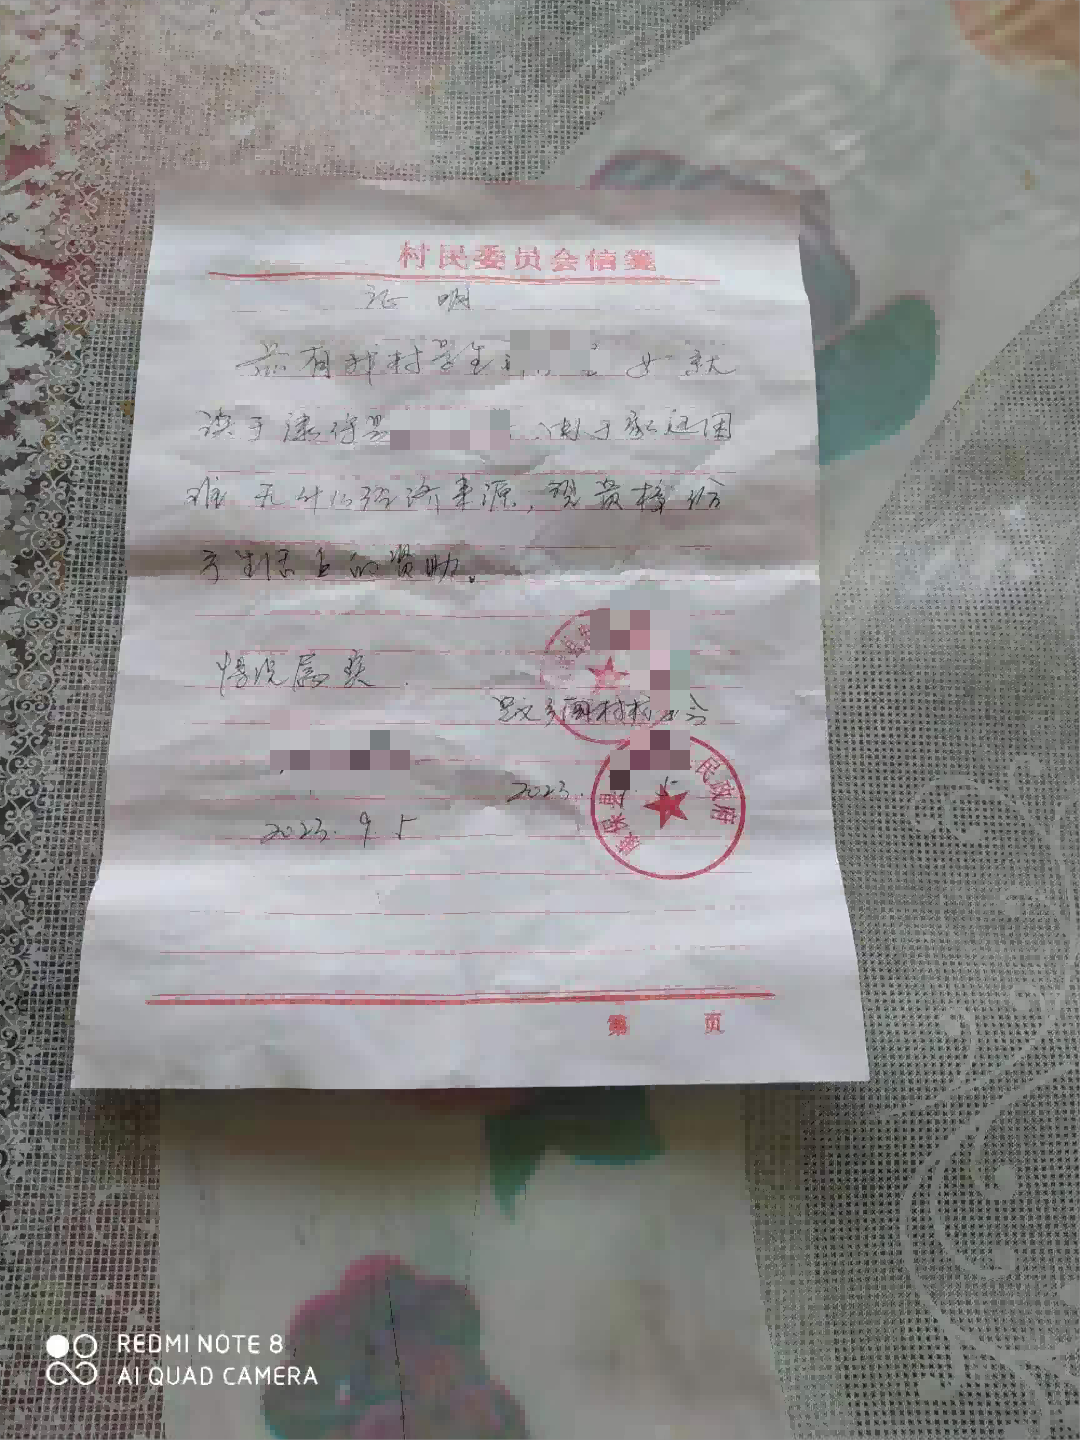 村民委员会信笺
证明
兹有我村学生 女 就
读于康保县 由于家庭困
难 无什么经济来源,望贵校给
予生活上的资助。
情况属实
村村委会
2023. 5
民政府
康保县
2023. 9. 5
第 页
REDMI NOTE 8
AI QUAD CAMERA